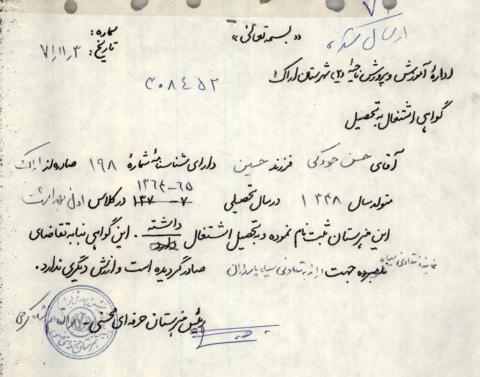 ۷
ارسال شد
«بسمه تعالی»
شماره:
تاریخ: ۷۱/۱۱/۳
۴۰۸۴۵۲
ادارهٔ آموزش و پرورش ناحیهٔ شهرستان اراک
گواهی اشتغال به تحصیل
آقای حسن فرزند حسین دارای شناسنامهٔ شمارهٔ ۱۹۸ صادره از اراک
۱۳۶۴-۶۵
متولد سال ۱۳۴۸ در سال تحصیلی ۷-۱۳۷ در کلاس اول
این هنرستان ثبت نام نموده و به تحصیل اشتغال داشته دارد. این گواهی بنا به تقاضای
نامبرده جهت: سپاه پاسداران صادر گردیده است و ارزش دیگری ندارد.
رئیس هنرستان حرفه‌ای